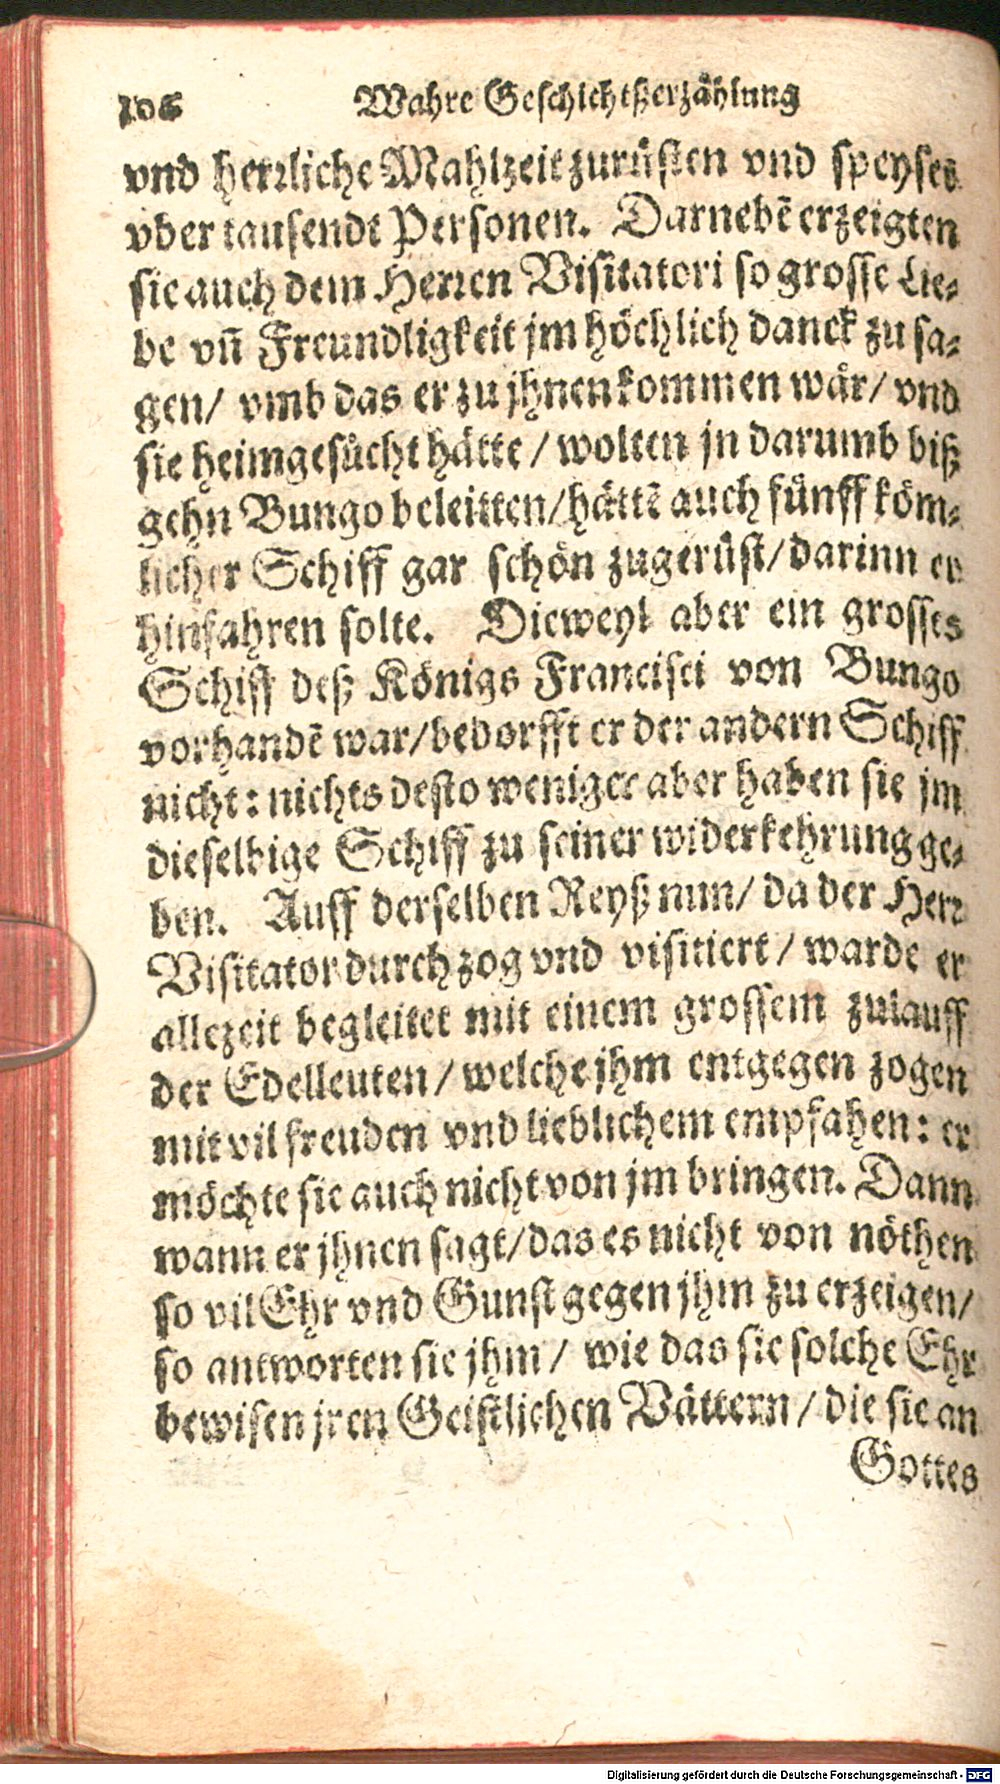 106 Wahre Geschichtßerzählung
vnd herrliche Mahlzeit zurüsten vnd speyses
vber tausendt Personen. Darnebē erzeigten
sie auch dem Herren Visitatori so grosse Lie-
be vñ Freundligkeit jm höchlich danck zu sa-
gen/ vmb das er zu jhnen kommen wär/ vnd
sie heimgesücht hätte/ wolten jn darumb biß
gehn Bungo beleitten/ hättē auch fünff köm-
licher Schiff gar schön zugerüst/ darinn er
hinfahren solte. Dieweyl aber ein grosses
Schiff deß Königs Francisci von Bungo
vorhandē war/ bedorfft er der andern Schiff
nicht: nichts desto weniger aber haben sie jm
dieselbige Schiff zu seiner widerkehrung ge-
ben. Auff derselben Reyß nun/ da der Herr
Visitator durch zog vnd visitiert/ warde er
allezeit begleitet mit einem grossem zulauff
der Edelleuten/ welche jhm entgegen zogen
mit vil freuden vnd lieblichem empfahen: er
möchte sie auch nicht von jm bringen. Dann
wann er jhnen sagt/ das es nicht von nöthen
so vil Ehr vnd Gunst gegen jhm zu erzeigen/
so antworten sie jhm/ wie das sie solche Ehr
bewisen jren Geistlichen Vättern/ die sie an
Gottes
Digitalisierung gefördert durch die Deutsche Forschungsgemeinschaft - DFG